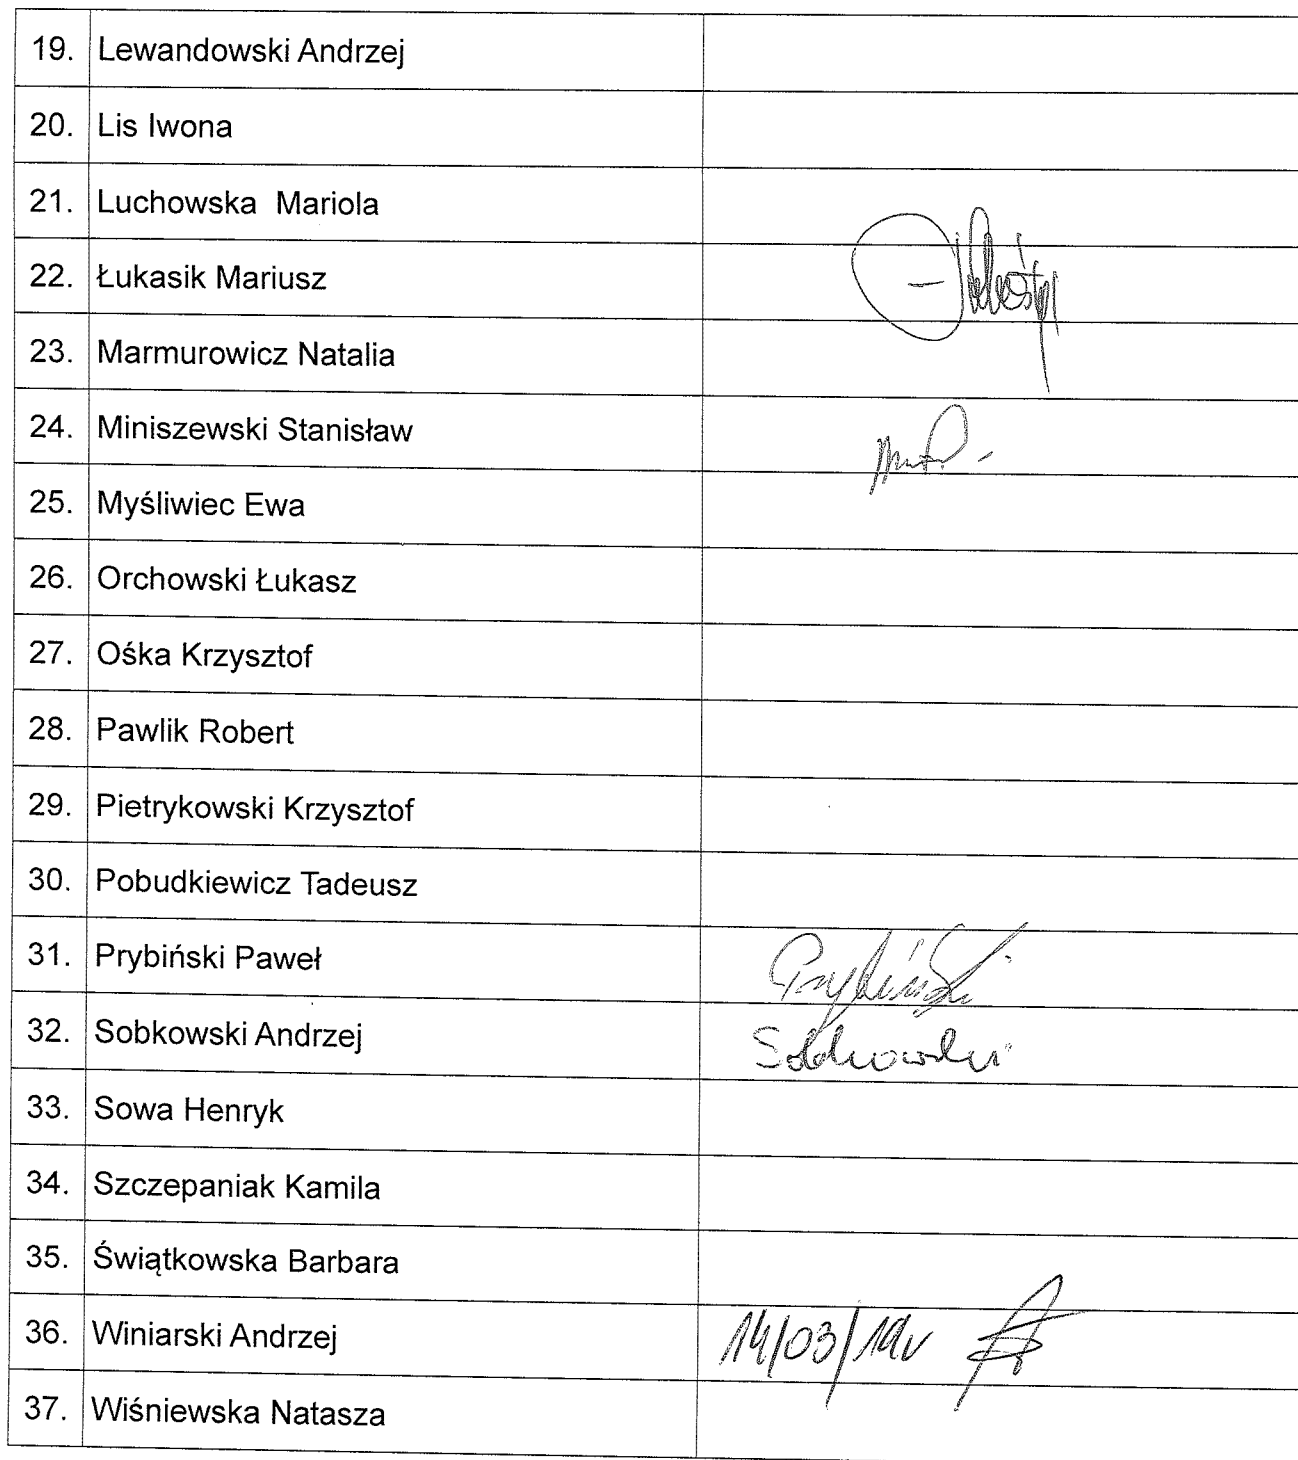 19. Lewandowski Andrzej
20. Lis Iwona
21. Luchowska Mariola
22. Łukasik Mariusz
23. Marmurowicz Natalia
24. Miniszewski Stanisław
25. Myśliwiec Ewa
26. Orchowski Łukasz
27. Ośka Krzysztof
28. Pawlik Robert
29. Pietrykowski Krzysztof
30. Pobudkiewicz Tadeusz
31. Prybiński Paweł
32. Sobkowski Andrzej Sobkowski
33. Sowa Henryk
34. Szczepaniak Kamila
35. Świątkowska Barbara
36. Winiarski Andrzej 14/03/19r
37. Wiśniewska Natasza